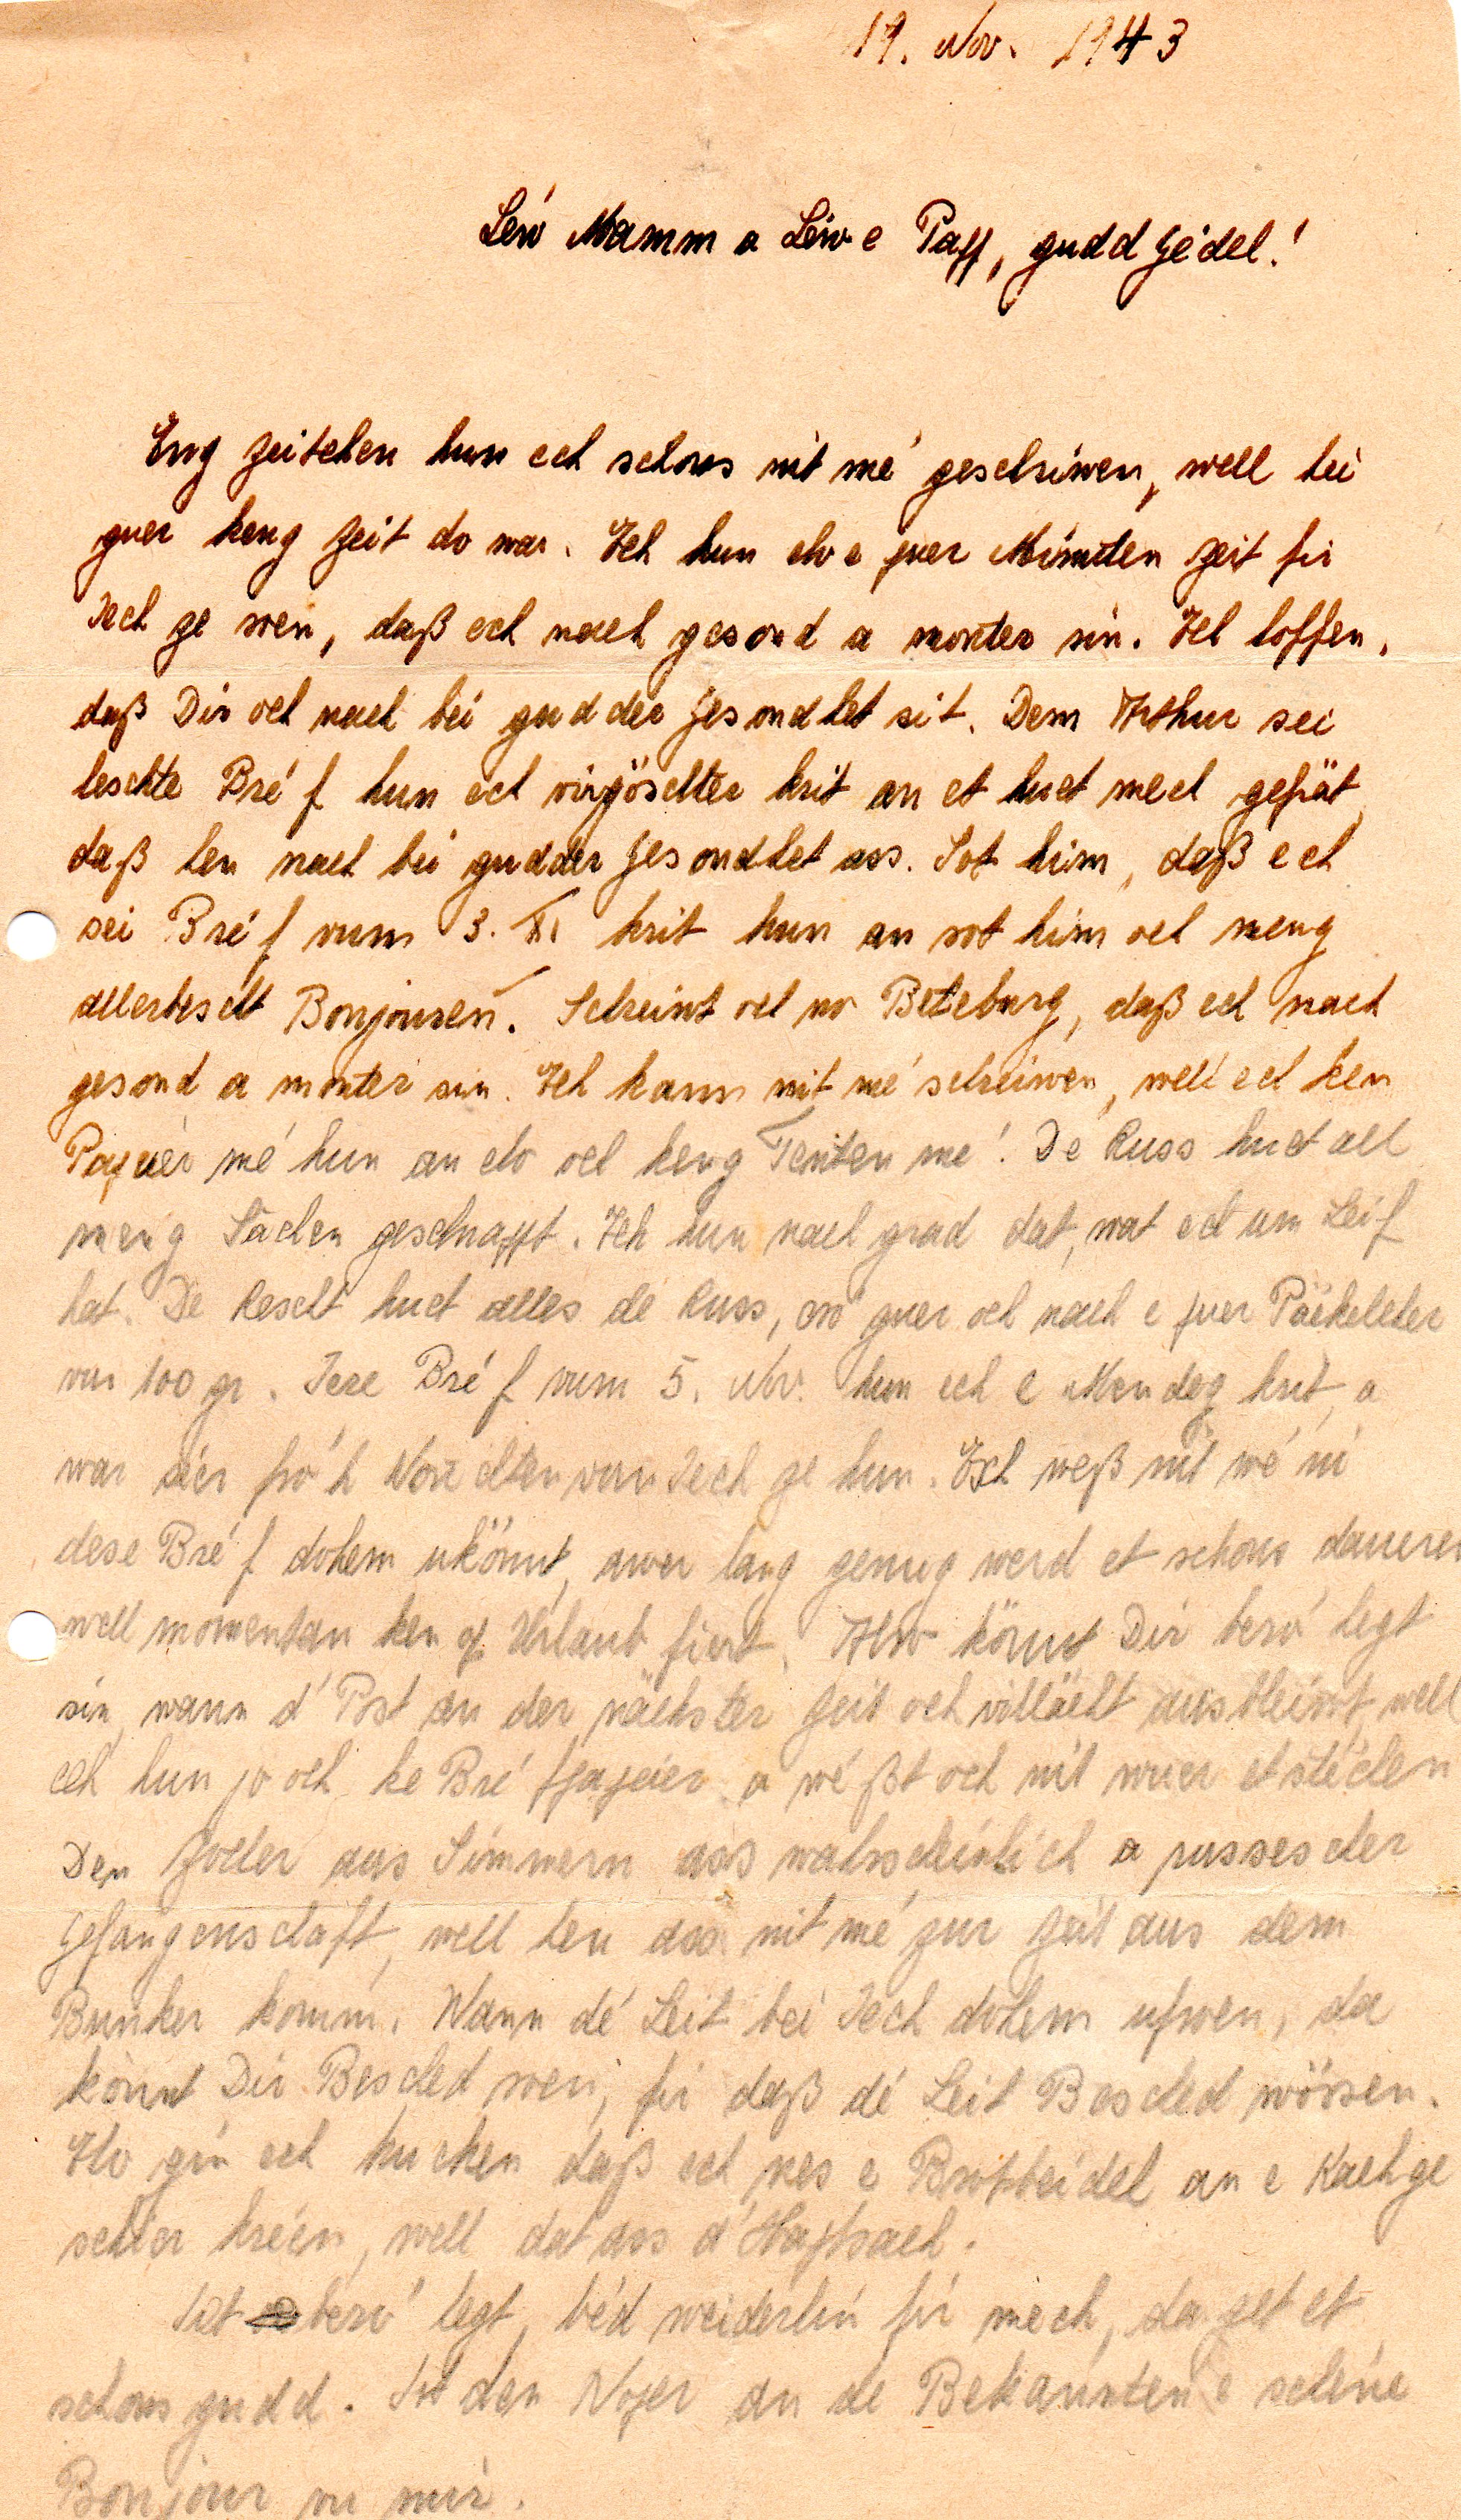 19. Nov. 1943
Léiw Mamm a Léiwe Papp, gudd Gédel!
Eng Zeitchen hun ech schons nit mé geschriwen, well hei
guer keng Zeit do war. Ech hun elo e puer Minuten Zeit fir
Iech ze soen, daß ech nach gesond a monter sin. Ech hoffen,
daß Dir och nach bei gudder Gesondhet sit. Dem Arthur sei
leschte Bréf hun ech virgöschter krit an et huet mech gefrät
daß hen nach bei gudder Gesondhet ass. Sot him, daß ech
sei Bréf vum 3. XI krit hun an sot him och meng
allerbescht Bonjouren. Schreiwt och no Beteburg, daß ech nach
gesond a monter sin. Ech kann nit mé schreiwen, well ech ken
Papeier mé hun an elo och keng Tenten mé! De Russ huet all
meng Sachen geschnappt. Ech hun nach grad dat, wat ech um Leif
hat. De Rescht huet alles de Russ, guer och nach e puer Päckelcher
vun 100 gr. Iere Bréf vum 5. Nov. hun ech e Mendeg krit, a
war séer fró'h Norichten vun Iech ze hun. Ech weß nit wé ni
dese Bréf dohem ukönnt, awer lang genug werd et schons daueren
well momentan ken op Urlaub fiert. Also könnt Dir beró'legt
sin, wann d'Post an der nächster Zeit och villäicht ausbleiwt, well
ech hun jo och ke Bréfpapeier a wéßt och nit wuer et stéchlen
Den Zoller aus Simmern ass wahrscheinlich a russescher
Gefangenschaft, well hen ass nit mé zur Zeit aus dem
Bunker komm. Wann dé Leit bei Iech dohem ufroen, da
könnt Dir Besched soen, fir daß dé Leit Besched wössen.
Elo gin ech kucken daß ech nes e Brotbeidel an e Kachge
scher kréen, well dat ass d'Haptsach.
Sit beró'legt, béd weiderhin fir mech, da get et
schons gudd. Sot den Noper an de Bekannten e schéne
Bonjour vu mir.